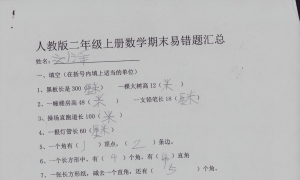 人教版二年级上册数学期末易错题汇总
姓名:
一、填空(在括号内填上适当的单位)
1、黑板长是300(厘米) 一棵大树高12(米)
2、一幢楼房高48(米) 一支铅笔长18(厘米)
3、操场直跑道长100(米)
4、一根灯管长60(厘米)
5、一个角有(1)顶点,(2)条边。
6、一个长方形中,有(4)个角,有(4)直角
7、一张长方形纸,减去一个直角,还有(5)个角。